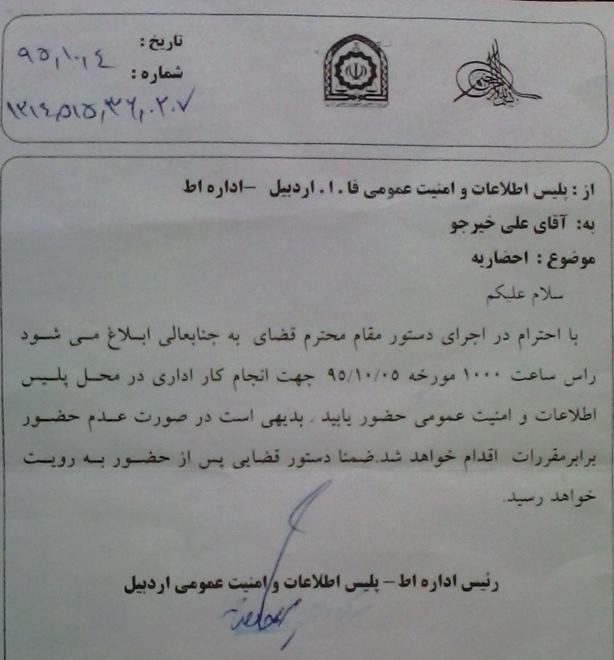 تاریخ : ۹۵,۱۰,٤
شماره :
از : پلیس اطلاعات و امنیت عمومی فا . ا . اردبیل –اداره اط
به: آقای علی خیرجو
موضوع : احضاریه
سلام علیکم
با احترام در اجرای دستور مقام محترم قضای به جنابعالی ابلاغ می شود
راس ساعت ۱۰۰۰ مورخه ۹۵/۱۰/۰۵ جهت انجام کار اداری در محل پلیس
اطلاعات و امنیت عمومی حضور یابید . بدیهی است در صورت عدم حضور
برابرمقررات اقدام خواهد شد.ضمنا دستور قضایی پس از حضور به رویت
خواهد رسید.
رئیس اداره اط – پلیس اطلاعات و امنیت عمومی اردبیل